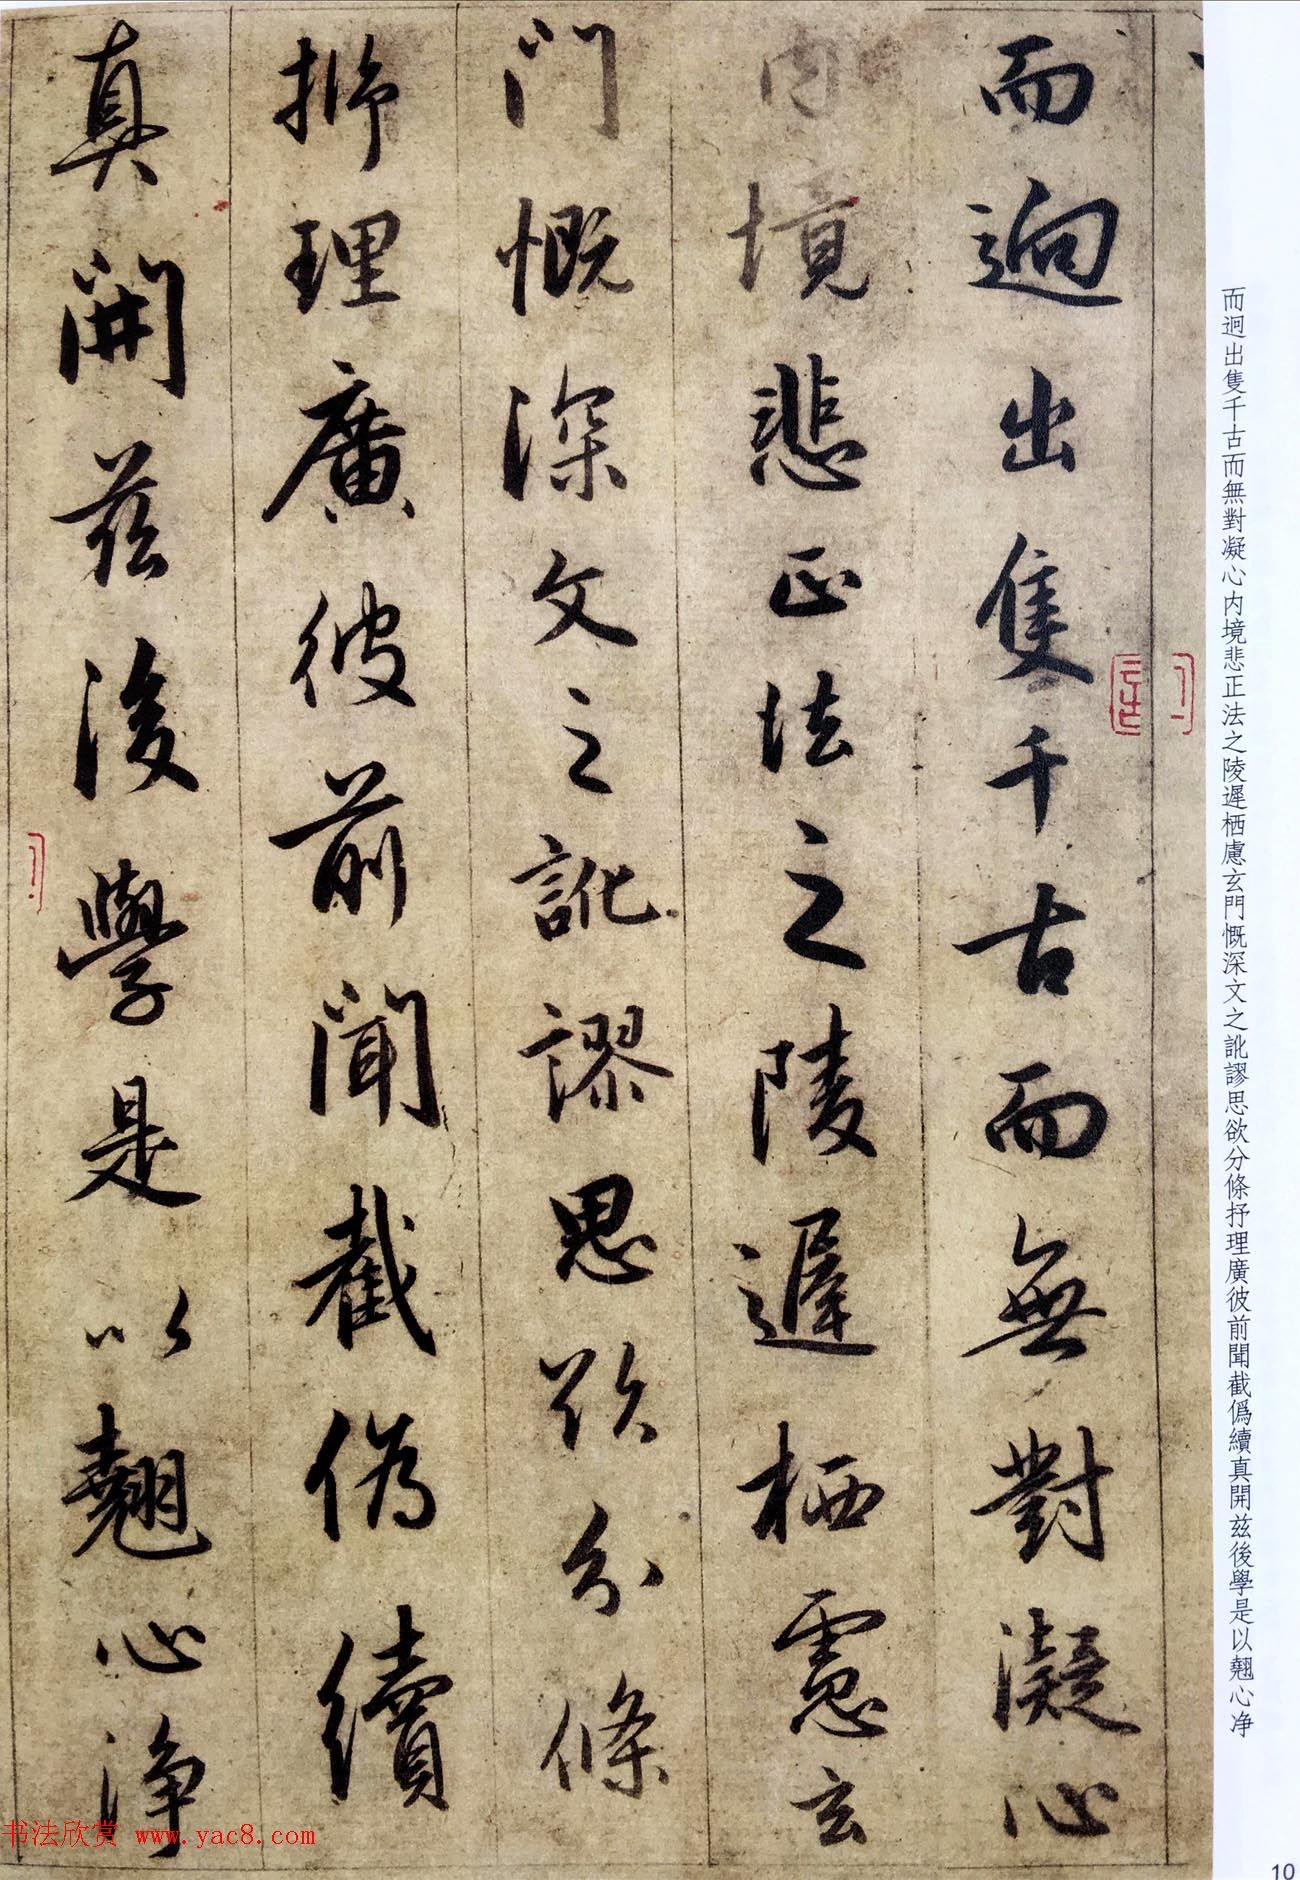 而迥出隻千古而無對凝心
内境悲正法之陵遲栖慮玄
門慨深文之訛謬思欲分條
抒理廣彼前聞截僞續
真開茲後學是以翹心浄
而迥出隻千古而無對凝心内境悲正法之陵遲栖慮玄門慨深文之訛謬思欲分條抒理廣彼前聞截僞續真開兹後學是以翹心净
10
书法欣赏 www.yac8.com